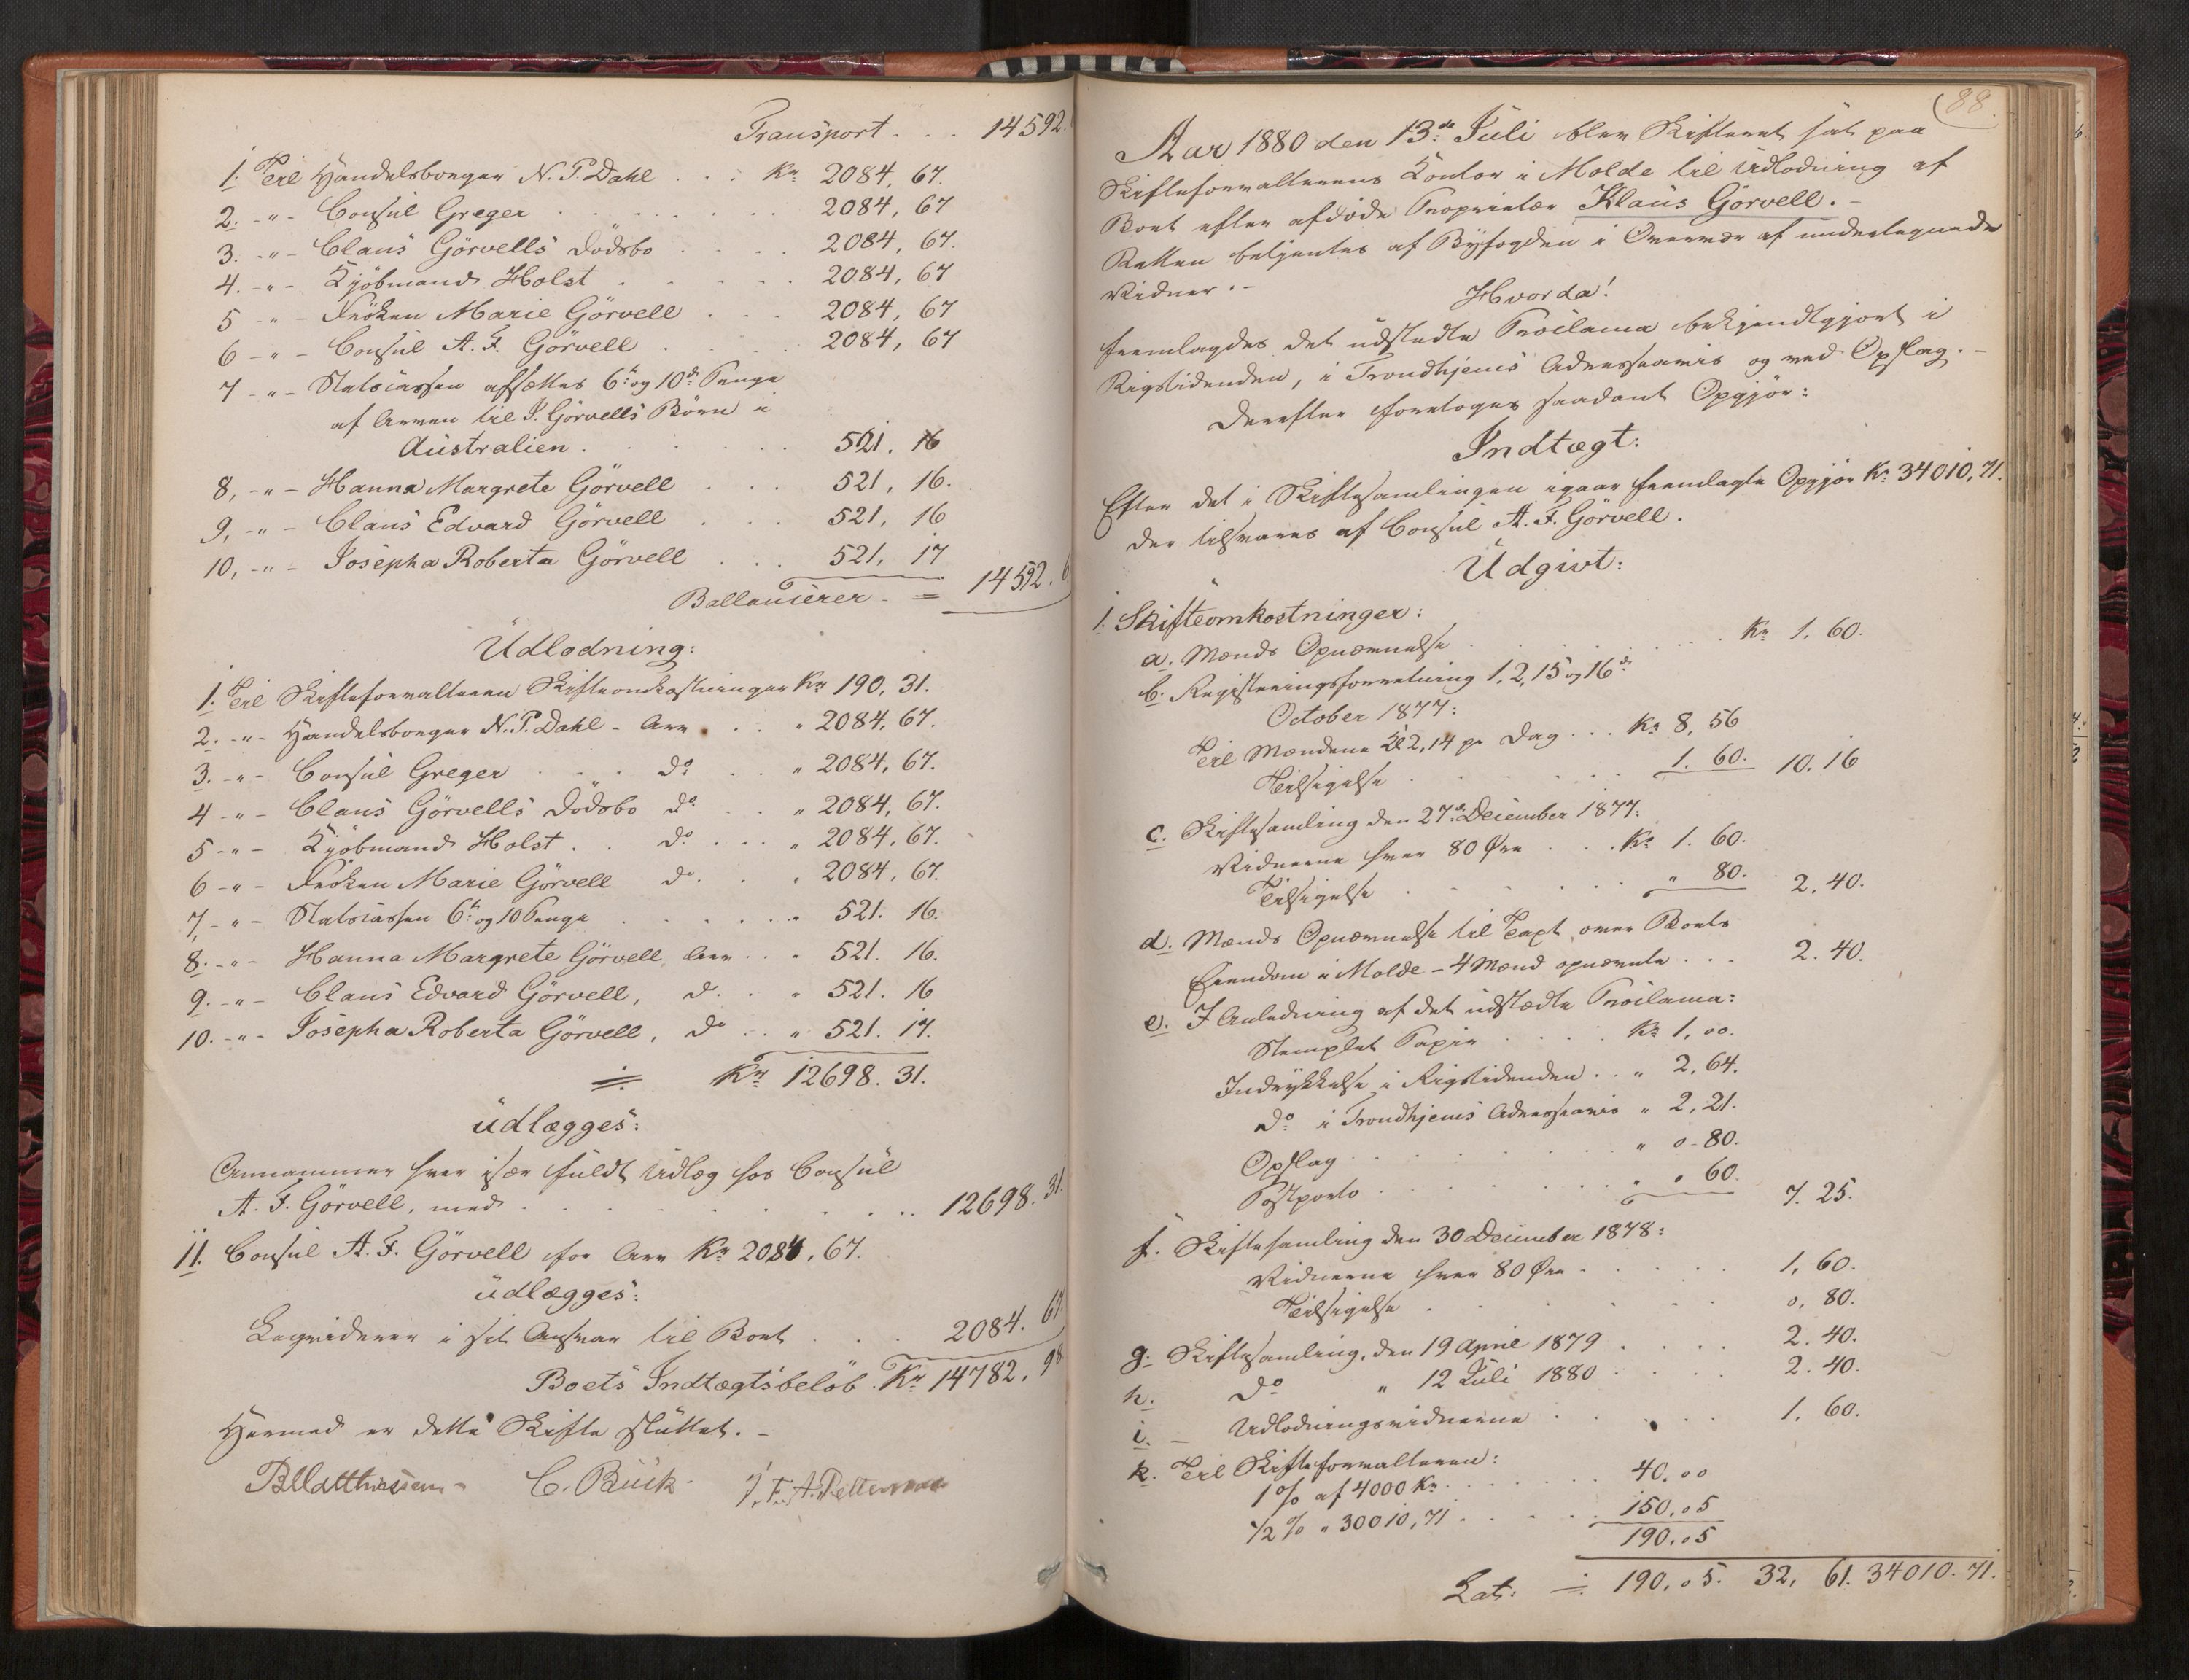 Transport . . . 14592.
1. Til Handelsborger N. P. Dahl . . . Kr 2084, 67.
2. -"- Consul Greger . . . 2084, 67
3. -"- Claus Görvells Dödsbo . . . 2084, 67.
4. -"- Kjöbmand Holst . . . 2084, 67
5 -"- Fröken Marie Görvell . . . 2084, 67
6 -"- Consul A. F. Görvell . . . 2084, 67
7 -"- Statscassen afsættes 6te og 10de Penge
af Arven til J. Görvells Börn i
Australien . . . 521. 16
8, -"- Hanna Margrete Görvell . . . 521, 16.
9, -"- Claus Edvard Görvell . . . 521, 16
10, -"- Josepha Roberta Görvell . . . 521, 17
Ballancerer - = 14592.
Udlodning:
1. Til Skifteforvalteren Skifteomkostninger Kr 190, 31.
2. -"- Handelsborger N. P. Dahl - Arv . . " 2084, 67.
3. -"- Consul Greger . . . Do . . " 2084, 67.
4 -"- Claus Görvells Dödsbo do . . " 2084, 67.
5 -"- Kjöbmand Holst . . do . . . " 2084, 67.
6 -"- Fröken Marie Görvell do . . " 2084, 67.
7, -"- Statscassen 6te og 10 Penge . . . " 521. 16.
8. -"- Hanna Margrete Görvell, Arv . . " 521. 16.
9. -"- Claus Edvard Görvell, d. . " 521. 16
10. -"- Josepha Roberta Görvell, do . . " 521. 17.
÷ Kr 12698. 31.
udlægges:
Annammer hver især fuldt Udlæg hos Consul
A. F. Görvell, med . . . 12698. 31.
11. Consul A. F. Görvell for Arv Kr 2084, 67.
udlægges:
Liqviderer i sit Ansvar til Boet . . . 2084. 67
Boets Indtægtsbelöb . Kr 14782, 98
Hermed er dette Skifte sluttet. -
B Matthiessen - C. Buck - J. F. A. Petterson
88.
Aar 1880 den 13de Juli blev Skifteret sat paa
Skifteforvalterens Kontor i Molde til Udlodning af
Boet efter afdöde Proprietær Klaus Görvell. -
Retten betjentes af Byfogden i Overvær af undertegnede
Vidner. -
Hvorda!
fremlagdes det udstedte Proclama bekjendtgjort i
Rigstidenden, i Trondhjems Adresseavis og ved Opslag. -
Derefter foretoges saadant Opgjör:
Indtægt:
Efter det i Skiftesamlingen igaar fremlagte Opgjör Kr 34010, 71.
der tilsvares af Consul A. F. Görvell.
Udgivt:
1. Skifteomkostninger:
a. Mænds Opnævnelse . . . Kr 1, 60.
b. Registeringsforretning 1, 2, 15 og 16de
October 1877:
Til Mændene Kr 2,14 pr Dag . . . Kr 8, 56
Tilsigelse . . . 1. 60. 10. 16
c. Skiftesamling den 27de December 1877:
Vidnerne hver 80 Øre . . . Kr 1. 60.
Tilsigelse . . . " 80. 2. 40.
d. Mænds Opnævnelse til Taxt over Boets
Eiendom i Molde - 4 Mænd opnævnte . . . 2. 40.
e. I Anledning af det udstædte Proclama:
Stemplet Papir . . . Kr 1, 00.
Indrykkelse i Rigstidenden . . " 2, 64.
Do i Trondhjems Adresseavis " 2, 21.
Opslag . . . " 0-80.
Postporto . . . " 0 60. 7. 25.
f. Skiftesamling den 30 December 1878:
Vidnerne hver 80 Øre . . . 1, 60.
Tilsigelse . . . 0, 80.
g. Skiftesamling, den 19 April 1879 . . . 2. 40.
h. Do " 12 Juli 1880 . . . 2. 40.
i. - Udlodningsvidnerne . . . 1, 60.
k. Til Skifteforvalteren:
1 % af 4000 Kr . . . 40, 00
1/2 % " 30010, 71 . . . 150, 05
190, 05
Lat: ÷ 190, 05. 32, 61. 34010. 71.